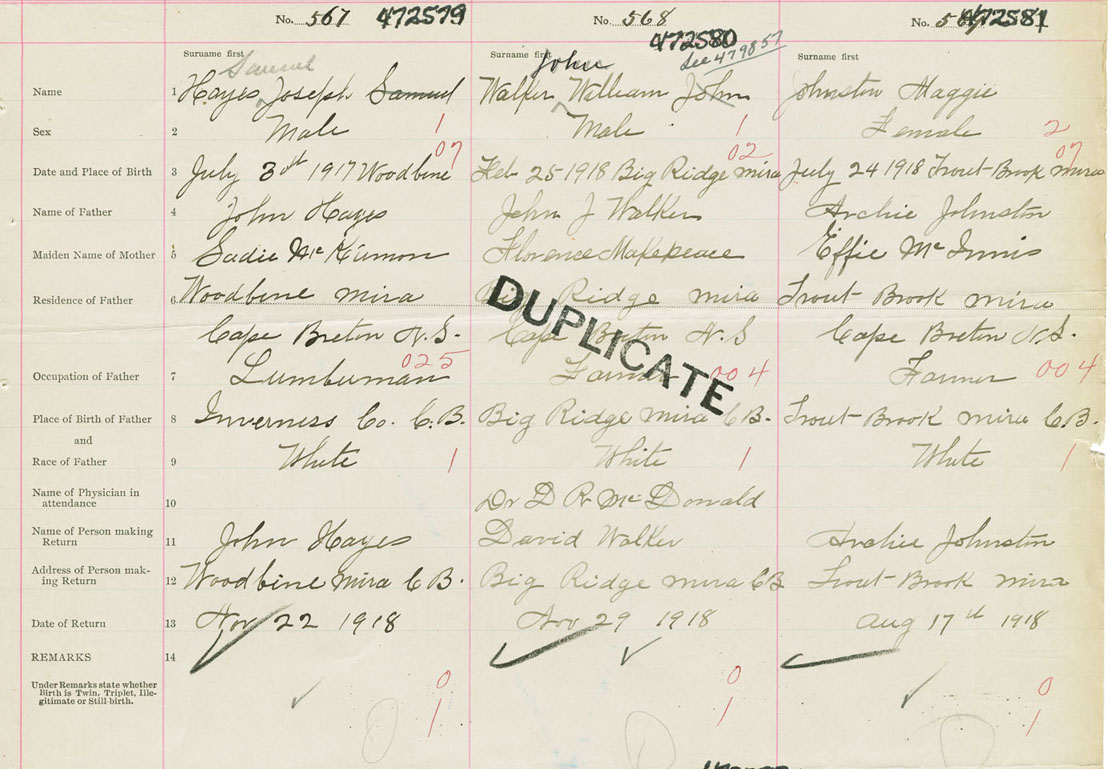 No. 567 472579 No. 568 472580 See 479857 No. 569 472581
Surname first Surname first Surname first
Samuel John
Name 1 Hayes Joseph Samuel Walker William John Johnston Maggie
Sex 2 Male 1 Male 1 Female 2
07 02 07
Date and Place of Birth 3 July 3rd 1917 Woodbine Feb 25 1918 Big Ridge Mira July 24 1918 Trout Brook Mira
Name of Father 4 John Hayes John J Walker Archie Johnston
Maiden Name of Mother 5 Sadie McKinnon Florence Makepeace Effie McInnis
Residence of Father 6 Woodbine Mira Big Ridge Mira Trout Brook Mira
Cape Breton N.S. Cape Breton N.S Cape Breton N.S.
DUPLICATE
Occupation of Father 7 Lumberman 025 Farmer 004 Farmer 004
Place of Birth of Father 8 Inverness Co. C.B. Big Ridge Mira C.B. Trout Brook Mira C.B.
and
Race of Father 9 White 1 White 1 White 1
Name of Physician in
attendance 10 Dr D R McDonald
Name of Person making
Return 11 John Hayes David Walker Archie Johnston
Address of Person mak-
ing Return 12 Woodbine Mira C.B. Big Ridge Mira CB Trout Brook Mira
Date of Return 13 Nov 22 1918 Nov 29 1918 Aug 17th 1918
REMARKS 14
Under Remarks state whether
Birth is Twin, Triplet, Ille-
gitimate or Still-birth.
0 0 0
1 1 1